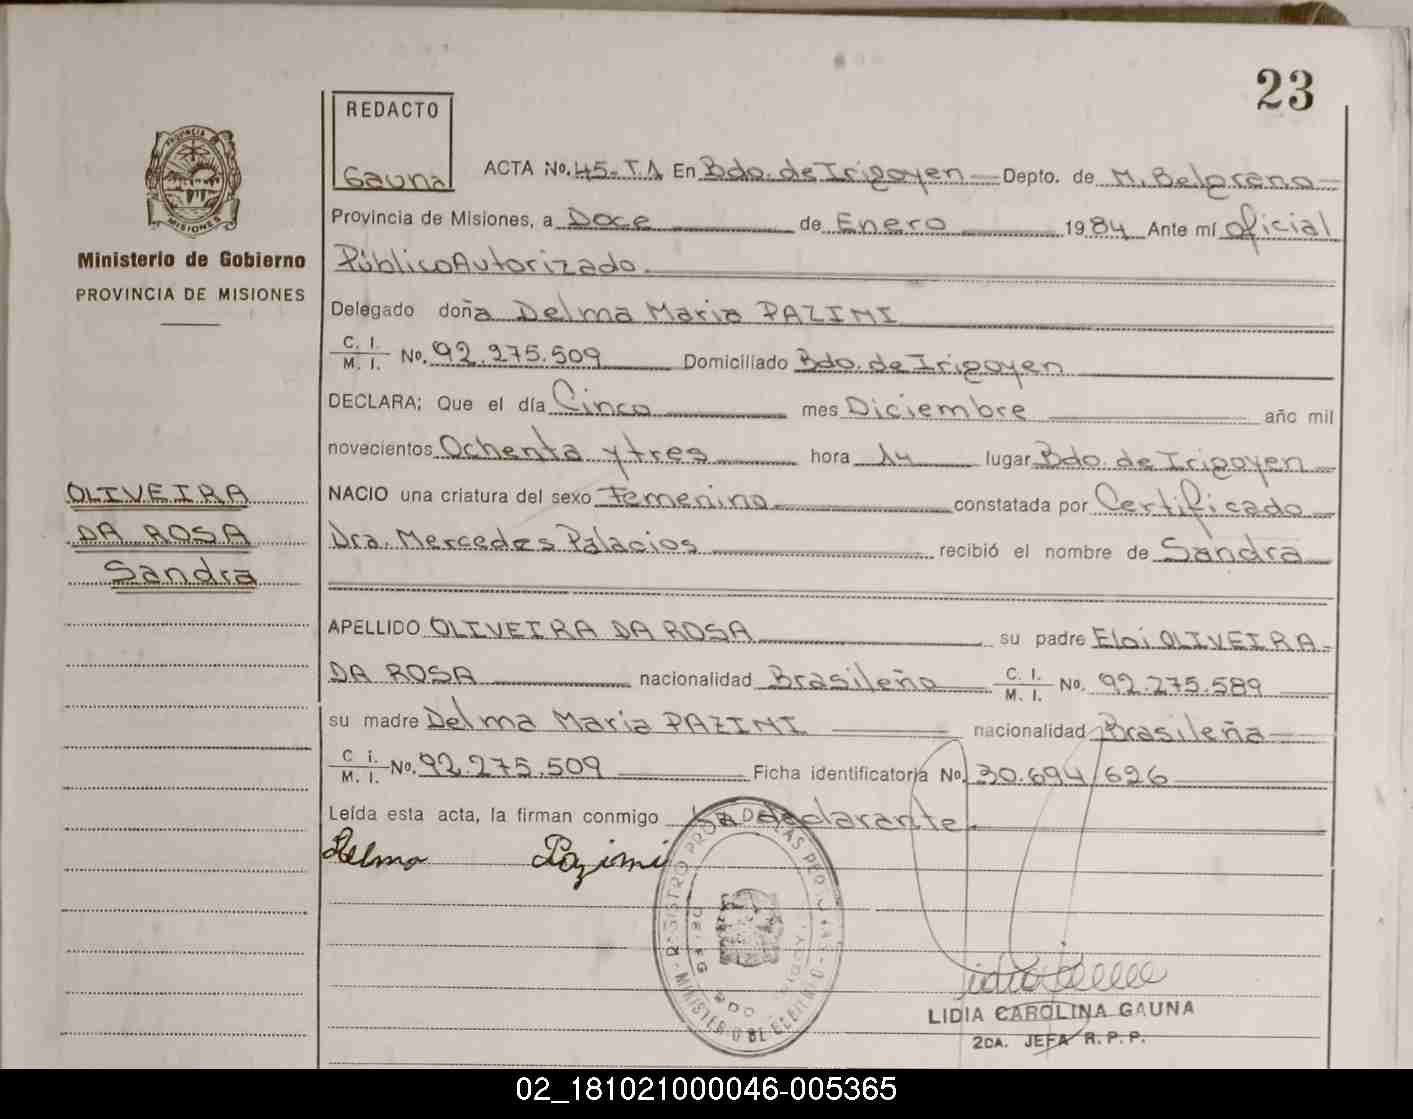 23
REDACTO
Gauna
ACTA No. 45-T.1 En Bdo. de Irigoyen Depto. de M. Belgrano
Provincia de Misiones, a Doce de Enero 1984 Ante mí oficial
Público Autorizado.
Delegado doña Delma Maria PAZIMI
C. I. M. I. No. 92.275.509 Domiciliado Bdo. de Irigoyen
DECLARA; Que el día Cinco mes Diciembre año mil
novecientos Ochenta y tres hora 14 lugar Bdo. de Irigoyen
NACIO una criatura del sexo Femenino constatada por Certificado
Dra. Mercedes Palacios recibió el nombre de Sandra
APELLIDO OLIVEIRA DA ROSA su padre Eloi OLIVEIRA
DA ROSA nacionalidad Brasileño C. I. M. I. No. 92.275.589
su madre Delma Maria PAZIMI nacionalidad Brasileña
C. i. M. I. No. 92.275.509 Ficha identificatoria No. 30.694/626
Leída esta acta, la firman conmigo La declarante
Delma Pazimi
LIDIA CAROLINA GAUNA
2DA. JEFA R. P. P.
PROVINCIA DE
MISIONES
Ministerio de Gobierno
PROVINCIA DE MISIONES
OLIVEIRA
DA ROSA
Sandra
02_181021000046-005365